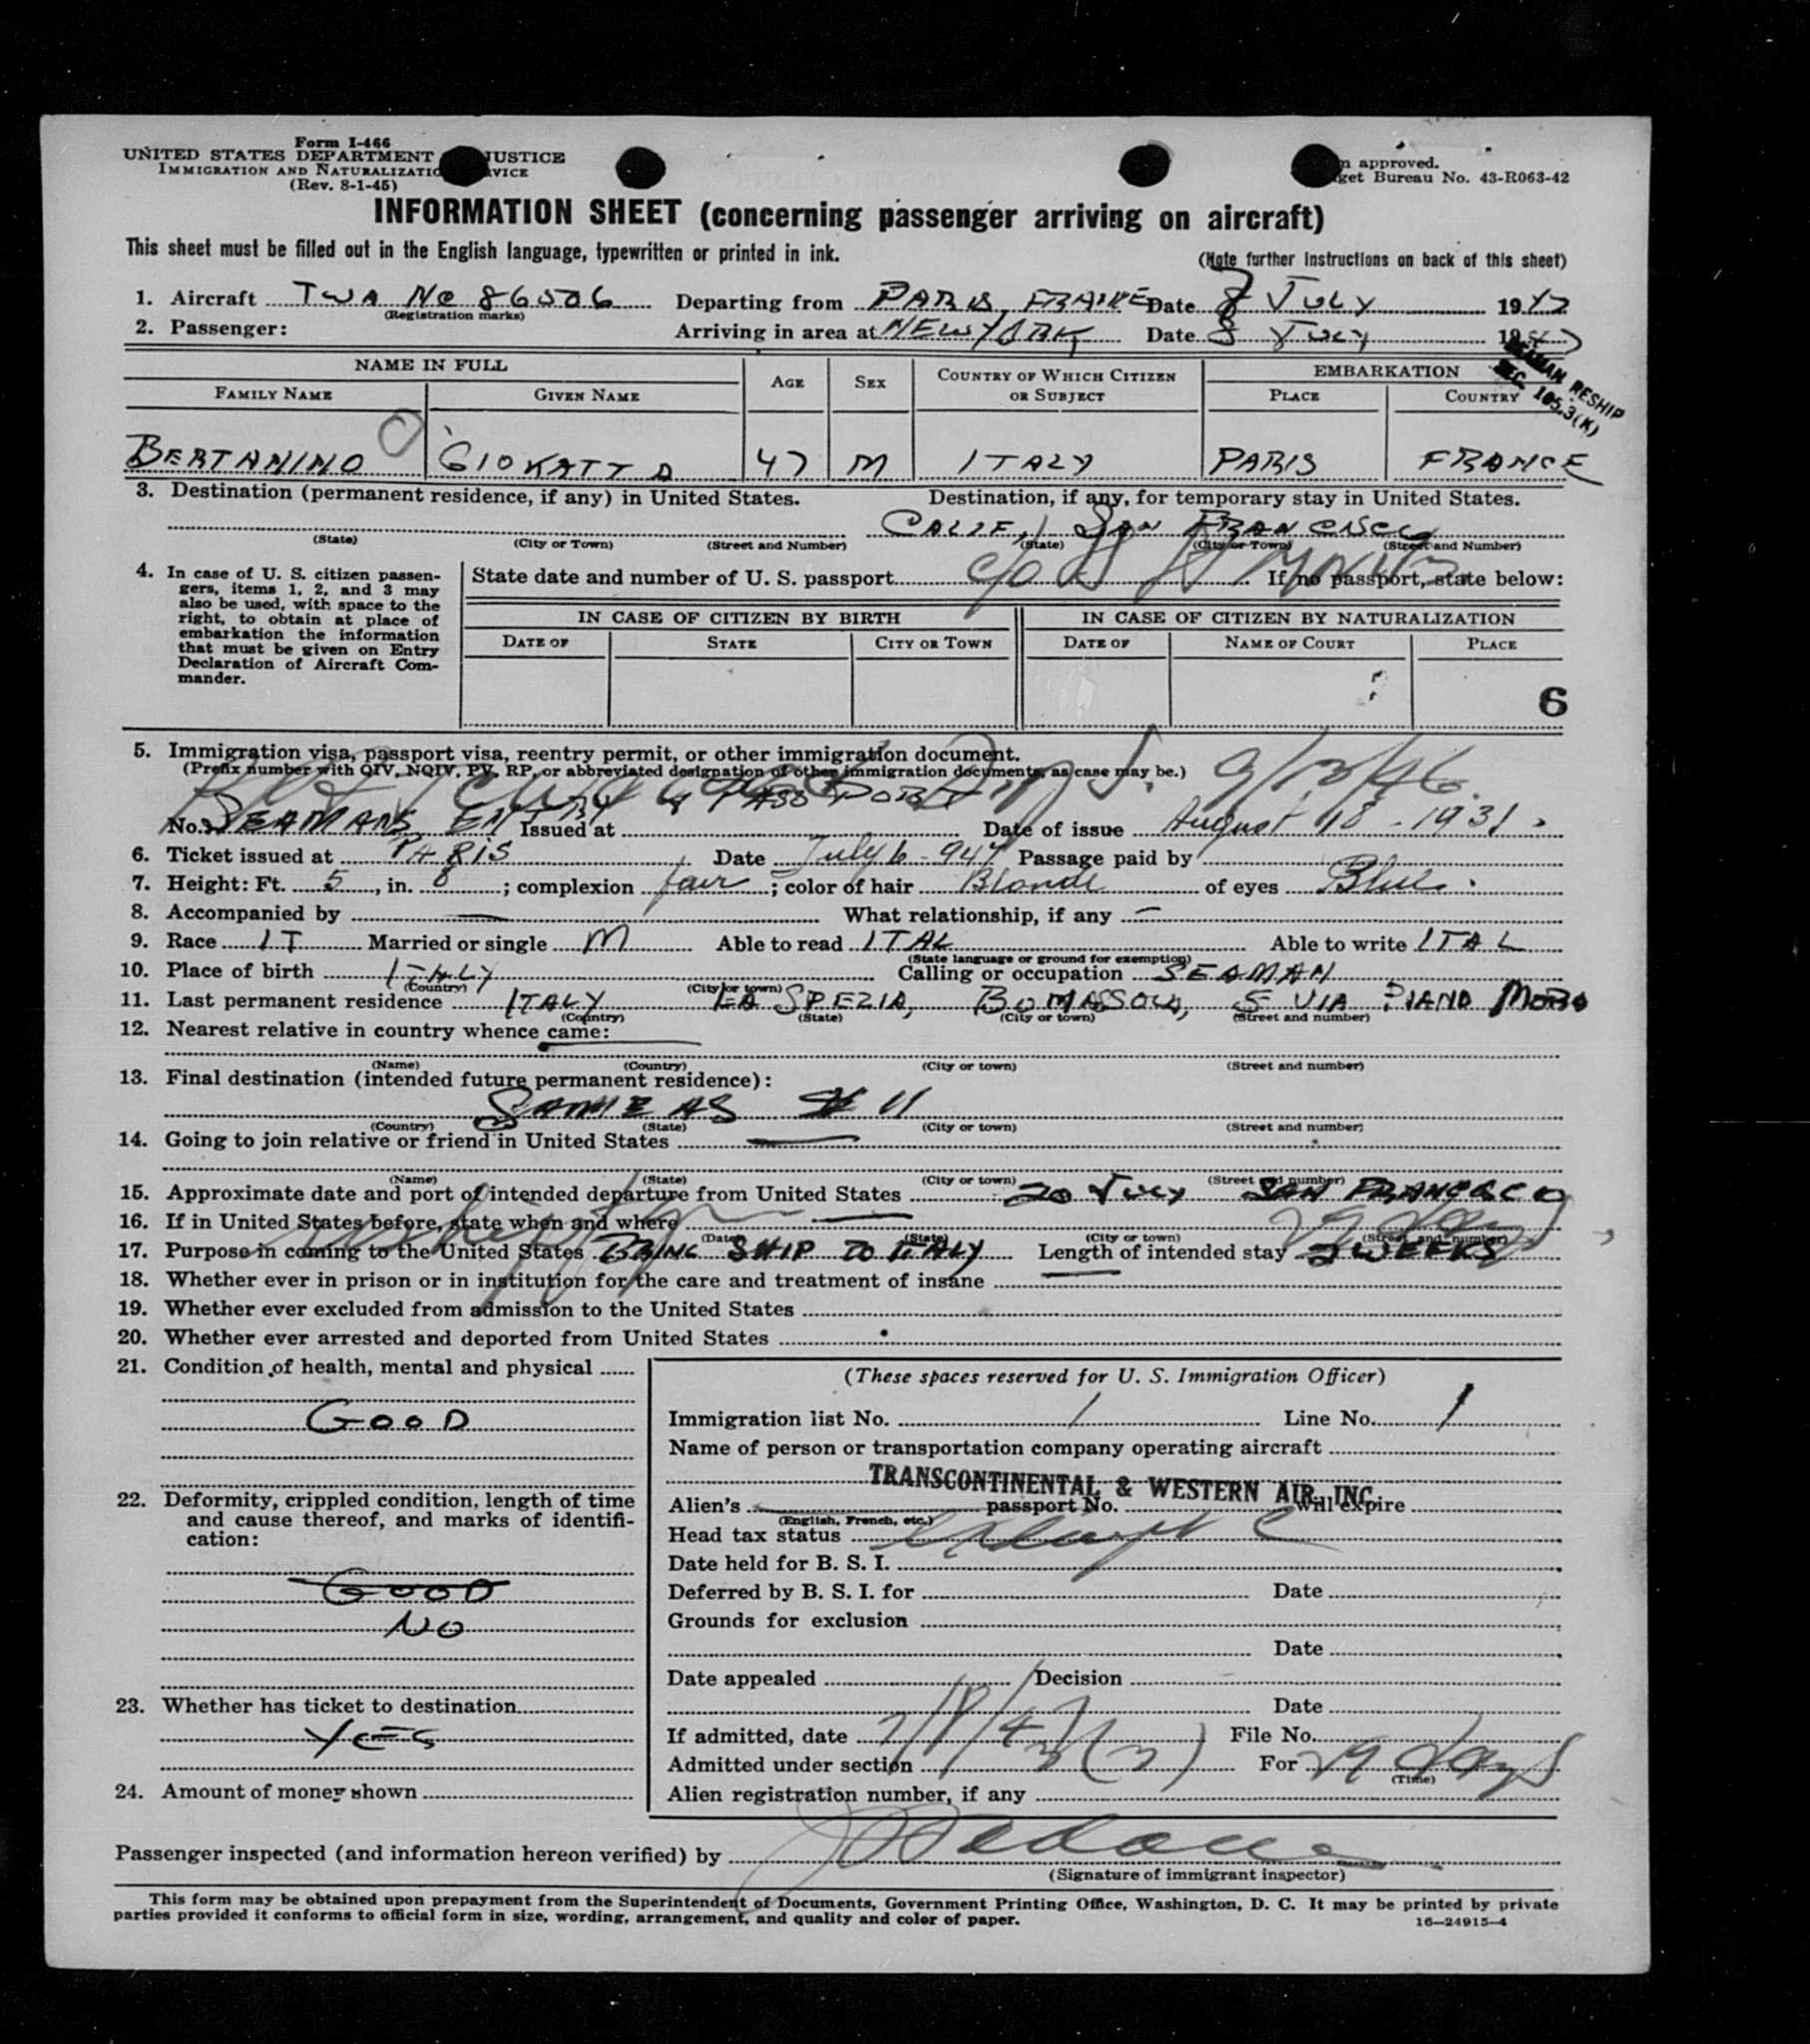 Form I-466
UNITED STATES DEPARTMENT JUSTICE
IMMIGRATION AND NATURALIZATIO RVICE
(Rev. 8-1-45)
n approved.
get Bureau No. 43-R063-42
INFORMATION SHEET (concerning passenger arriving on aircraft)
This sheet must be filled out in the English language, typewritten or printed in ink.
(Note further instructions on back of this sheet)
1. Aircraft TWA No 86506 Departing from PARIS, FRANCE Date 7 JULY 1947
(Registration marks)
2. Passenger: Arriving in area at NEW YORK Date 8 JULY 1947
SEAMAN RESHIP
SEC 105.3(K)
NAME IN FULL AGE SEX COUNTRY OF WHICH CITIZEN OR SUBJECT EMBARKATION
FAMILY NAME GIVEN NAME PLACE COUNTRY
BERTANINO GIOKATTA 47 M ITALY PARIS FRANCE
3. Destination (permanent residence, if any) in United States. Destination, if any, for temporary stay in United States.
CALIF, SAN FRANCISCO
(State) (City or Town) (Street and Number) (State) (City or Town) (Street and Number)
c/o
4. In case of U. S. citizen passengers, items 1, 2, and 3 may also be used, with space to the right, to obtain at place of embarkation the information that must be given on Entry Declaration of Aircraft Commander.
State date and number of U. S. passport If no passport, state below:
IN CASE OF CITIZEN BY BIRTH IN CASE OF CITIZEN BY NATURALIZATION
DATE OF STATE CITY OR TOWN DATE OF NAME OF COURT PLACE
6
5. Immigration visa, passport visa, reentry permit, or other immigration document.
(Prefix number with QIV, NQIV, PV, RP, or abbreviated designation of other immigration documents, as case may be.)
9/13/46
No. SEAMANS ENTRY & PASSPORT Issued at Date of issue August 18 - 1931
6. Ticket issued at PARIS Date July 6 - 947 Passage paid by
7. Height: Ft. 5, in. 8; complexion fair; color of hair Blonde of eyes Blue.
8. Accompanied by — What relationship, if any —
9. Race IT Married or single M Able to read ITAL Able to write ITAL
(State language or ground for exemption)
10. Place of birth ITALY Calling or occupation SEAMAN
(Country) (City or town)
11. Last permanent residence ITALY LA SPEZIA, BOMASSOLA, 5 VIA PIANO MORO
(Country) (State) (City or town) (Street and number)
12. Nearest relative in country whence came:
(Name) (Country) (City or town) (Street and number)
13. Final destination (intended future permanent residence):
SAME AS # 11
(Country) (State) (City or town) (Street and number)
14. Going to join relative or friend in United States —
(Name) (State) (City or town) (Street and number)
15. Approximate date and port of intended departure from United States 20 JULY SAN FRANCISCO
16. If in United States before, state when and where —
(Date) (State) (City or town) (Street and number)
29 days
17. Purpose in coming to the United States BRING SHIP TO ITALY Length of intended stay 2 WEEKS
18. Whether ever in prison or in institution for the care and treatment of insane —
19. Whether ever excluded from admission to the United States
20. Whether ever arrested and deported from United States
21. Condition of health, mental and physical
GOOD
22. Deformity, crippled condition, length of time and cause thereof, and marks of identification:
GOOD
NO
23. Whether has ticket to destination
YES
24. Amount of money shown
(These spaces reserved for U. S. Immigration Officer)
Immigration list No. 1 Line No. 1
Name of person or transportation company operating aircraft
TRANSCONTINENTAL & WESTERN AIR, INC.
Alien's passport No. Will expire
(English, French, etc.)
Head tax status
Date held for B. S. I.
Deferred by B. S. I. for Date
Grounds for exclusion
Date
Date appealed Decision
Date
If admitted, date 7/8/47 File No.
Admitted under section 3(3) For 29 days
(Time)
Alien registration number, if any
Passenger inspected (and information hereon verified) by
(Signature of immigrant inspector)
This form may be obtained upon prepayment from the Superintendent of Documents, Government Printing Office, Washington, D. C. It may be printed by private
parties provided it conforms to official form in size, wording, arrangement, and quality and color of paper.
16—24915-4